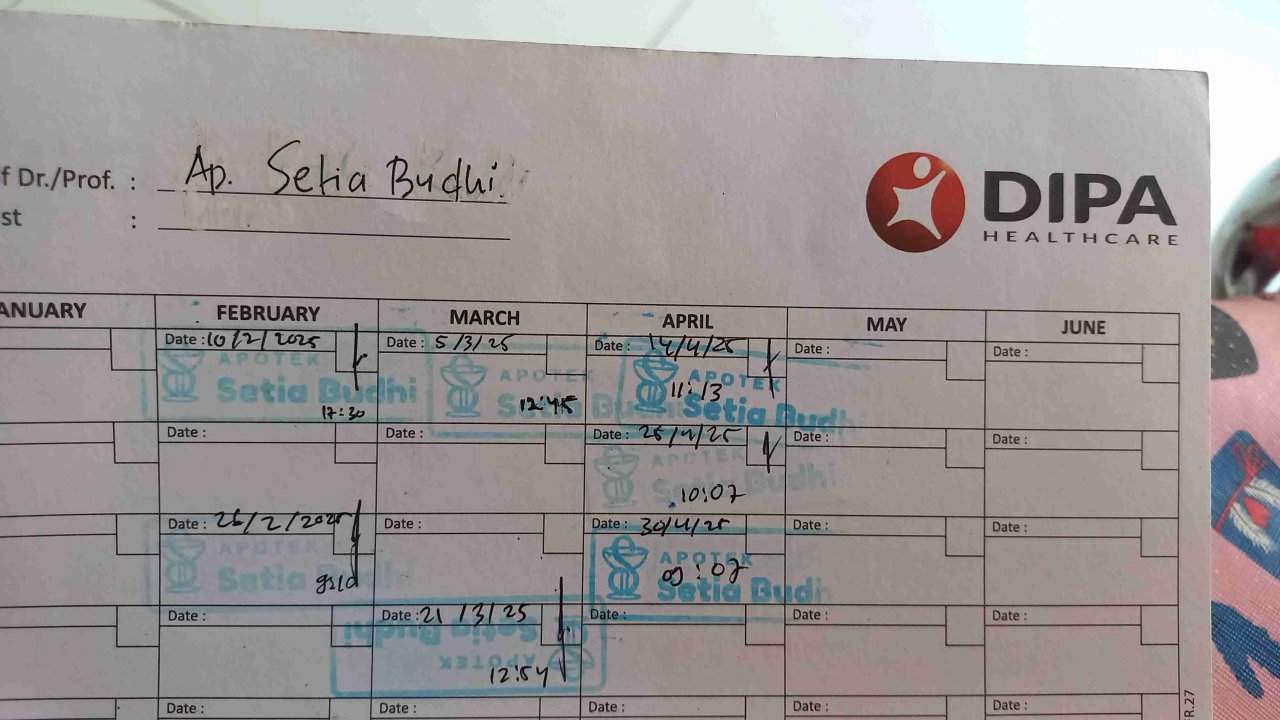 f Dr./Prof. : Ap. Setia Budhi.
st :
DIPA
HEALTHCARE
ANUARY FEBRUARY MARCH APRIL MAY JUNE
Date : 10/2/2025 Date : 5/3/25 Date : 14/4/25 Date : Date :
APOTEK APOTEK APOTEK
Setia Budhi Setia Budhi
17:30 12:45 11:13
Date : Date : Date : 25/4/25 Date : Date :
APOTEK
Setia Budhi
10:07
Date : 26/2/2025 Date : Date : 30/4/25 Date : Date :
APOTEK APOTEK
Setia Budhi Setia Budhi
09:07
Date : Date : 21/3/25 Date : Date : Date :
Setia Budhi
APOTEK
12:54
Date : Date : Date : Date : Date :
R.27